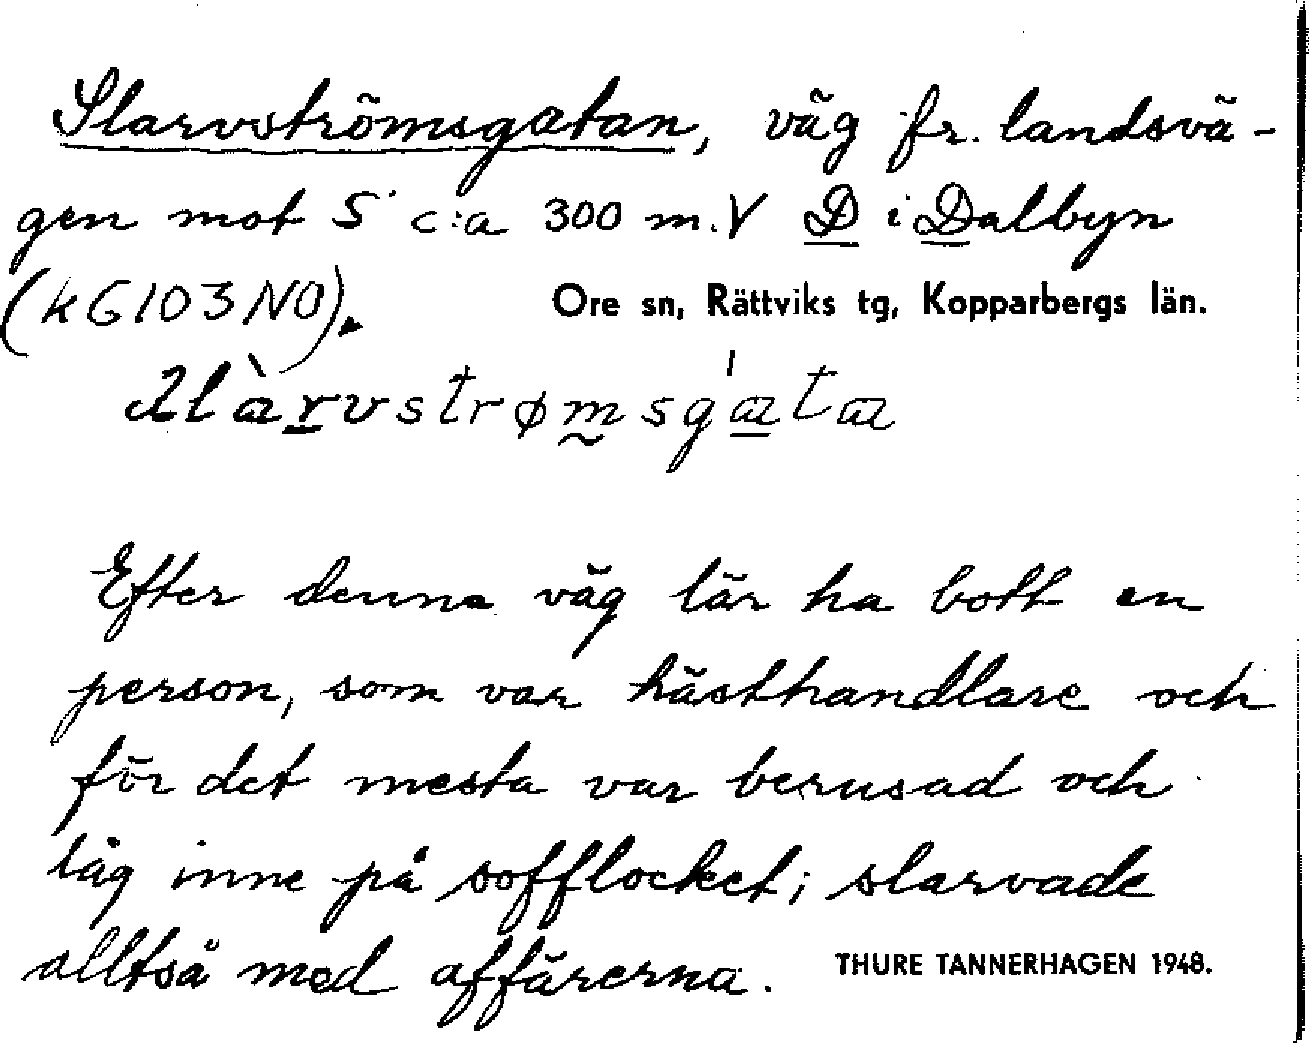 Slarvströmsgatan, väg fr. landsvä-
gen mot S c:a 300 m. V D i Dalbyn
(kG103NO).
Ore sn, Rättviks tg, Kopparbergs län.
slàrvstrømsgata
Efter denna väg lär ha bott en
person, som var hästhandlare och
för det mesta var berusad och
låg inne på sofflocket; slarvade
alltså med affärerna.
THURE TANNERHAGEN 1948.